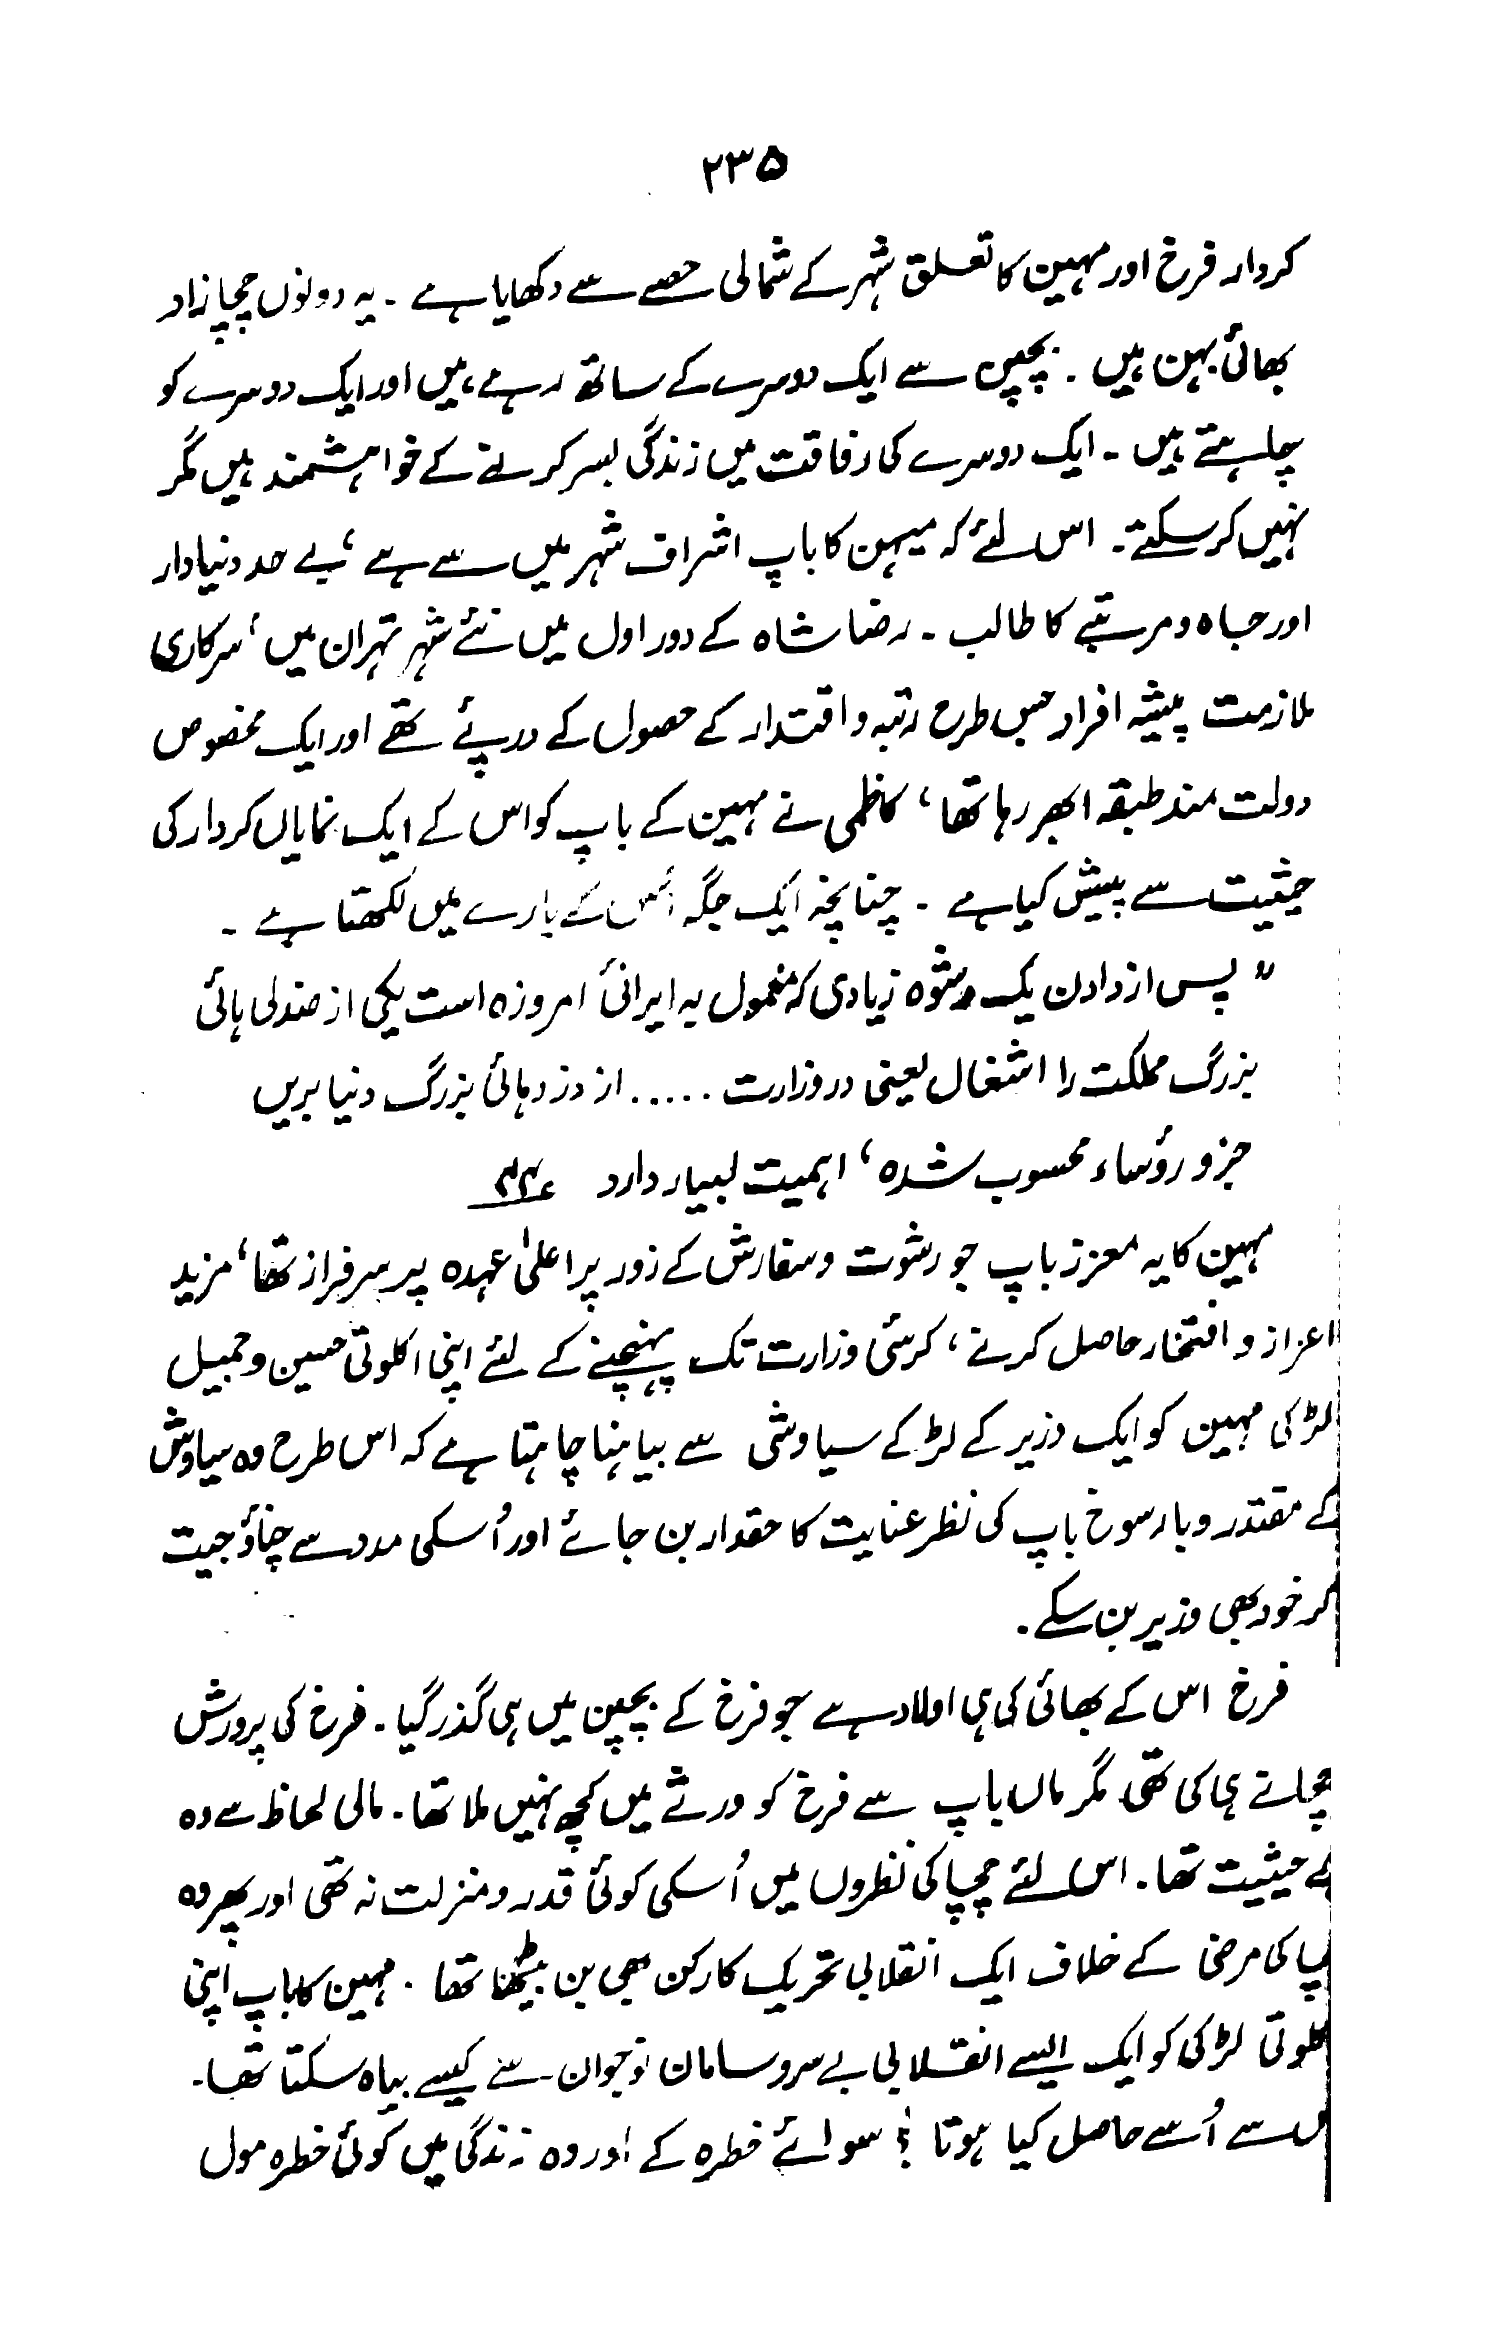 ۲۳۵
کردار فرخ اور مہین کا تعلق شہر کے شمالی حصے سے دکھایا ہے ۔ یہ دونوں چچا زاد
بھائی بہن ہیں ۔ بچپن سے ایک دوسرے کے ساتھ رہے ہیں اور ایک دوسرے کو
چاہتے ہیں ۔ ایک دوسرے کی رفاقت میں زندگی بسر کرنے کے خواہشمند ہیں مگر
نہیں کر سکتے ۔ اس لئے کہ میہن کا باپ اشراف شہر میں سے ہے ، بے حد دنیا دار
اور جاہ و مرتبے کا طالب ۔ رضا شاہ کے دور اول میں نئے شہر تہران میں ، سرکاری
ملازمت پیشہ افراد جس طرح رتبہ و اقتدار کے حصول کے درپئے تھے اور ایک مخصوص
دولت مند طبقہ ابھر رہا تھا ، کاظمی نے مہین کے باپ کو اس کے ایک نمایاں کردار کی
حیثیت سے پیش کیا ہے ۔ چنانچہ ایک جگہ اُس کے بارے میں لکھتا ہے ۔
" پس از دادن یک رشوہ زیادی کہ معمول بہ ایرانیٔ امروزہ است یکی از صندلی ہائی
بزرگ مملکت را اشغال یعنی در وزارت ..... از دزدہائی بزرگ دنیا بریں
جزو رؤساء محسوب شدہ ، اہمیت بسیار دارد
مہین کا یہ معزز باپ جو رشوت و سفارش کے زور پر اعلیٰ عہدہ پر سرفراز تھا ، مزید
اعزاز و افتخار حاصل کرنے ، کرسئی وزارت تک پہنچنے کے لئے اپنی اکلوتی حسین و جمیل
لڑکی مہین کو ایک وزیر کے لڑکے سیاوشی سے بیاہنا چاہتا ہے کہ اس طرح وہ سیاوش
کے مقتدر و بارسوخ باپ کی نظر عنایت کا حقدار بن جائے اور اُسکی مدد سے چناؤ جیت
کر خود بھی وزیر بن سکے ۔
فرخ اس کے بھائی کی ہی اولاد ہے جو فرخ کے بچپن میں ہی گذر گیا ۔ فرخ کی پرورش
چچانے ہی کی تھی مگر ماں باپ سے فرخ کو ورثے میں کچھ نہیں ملا تھا ۔ مالی لحاظ سے وہ
بے حیثیت تھا ۔ اس لئے چچا کی نظروں میں اُسکی کوئی قدر و منزلت نہ تھی اور پھر وہ
کی مرضی کے خلاف ایک انقلابی تحریک کا رکن بھی بن بیٹھا تھا ۔ مہین کا باپ اپنی
کلوتی لڑکی کو ایک ایسے انقلابی بے سروسامان نوجوان سے کیسے بیاہ سکتا تھا ۔
سے اُسے حاصل کیا ہوتا ؟ سوائے خطرہ کے اور وہ زندگی میں کوئی خطرہ مول